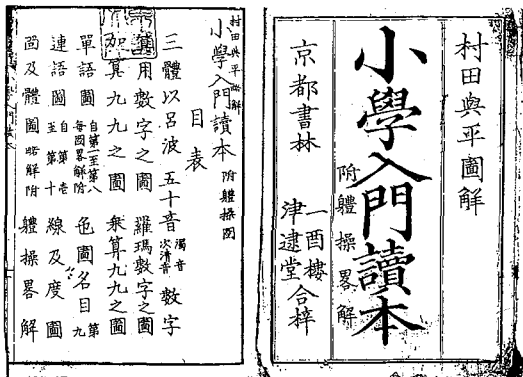 村田與平圖解
小學入門讀本
附體操畧解
京都書林
一酉樓
津逮堂
合梓
村田與平略解
小學入門讀本 附體操圖
目表
三體以呂波 五十音 濁音 次清音 數字
算用數字之圖 羅瑪數字之圖
加算九九之圖 乗算九九之圖
單語圖 自第一至第八 每図畧解附 色圖名目 第九
連語圖 自第壱 至第十 線及度圖
面及體圖 略解附 體操畧解